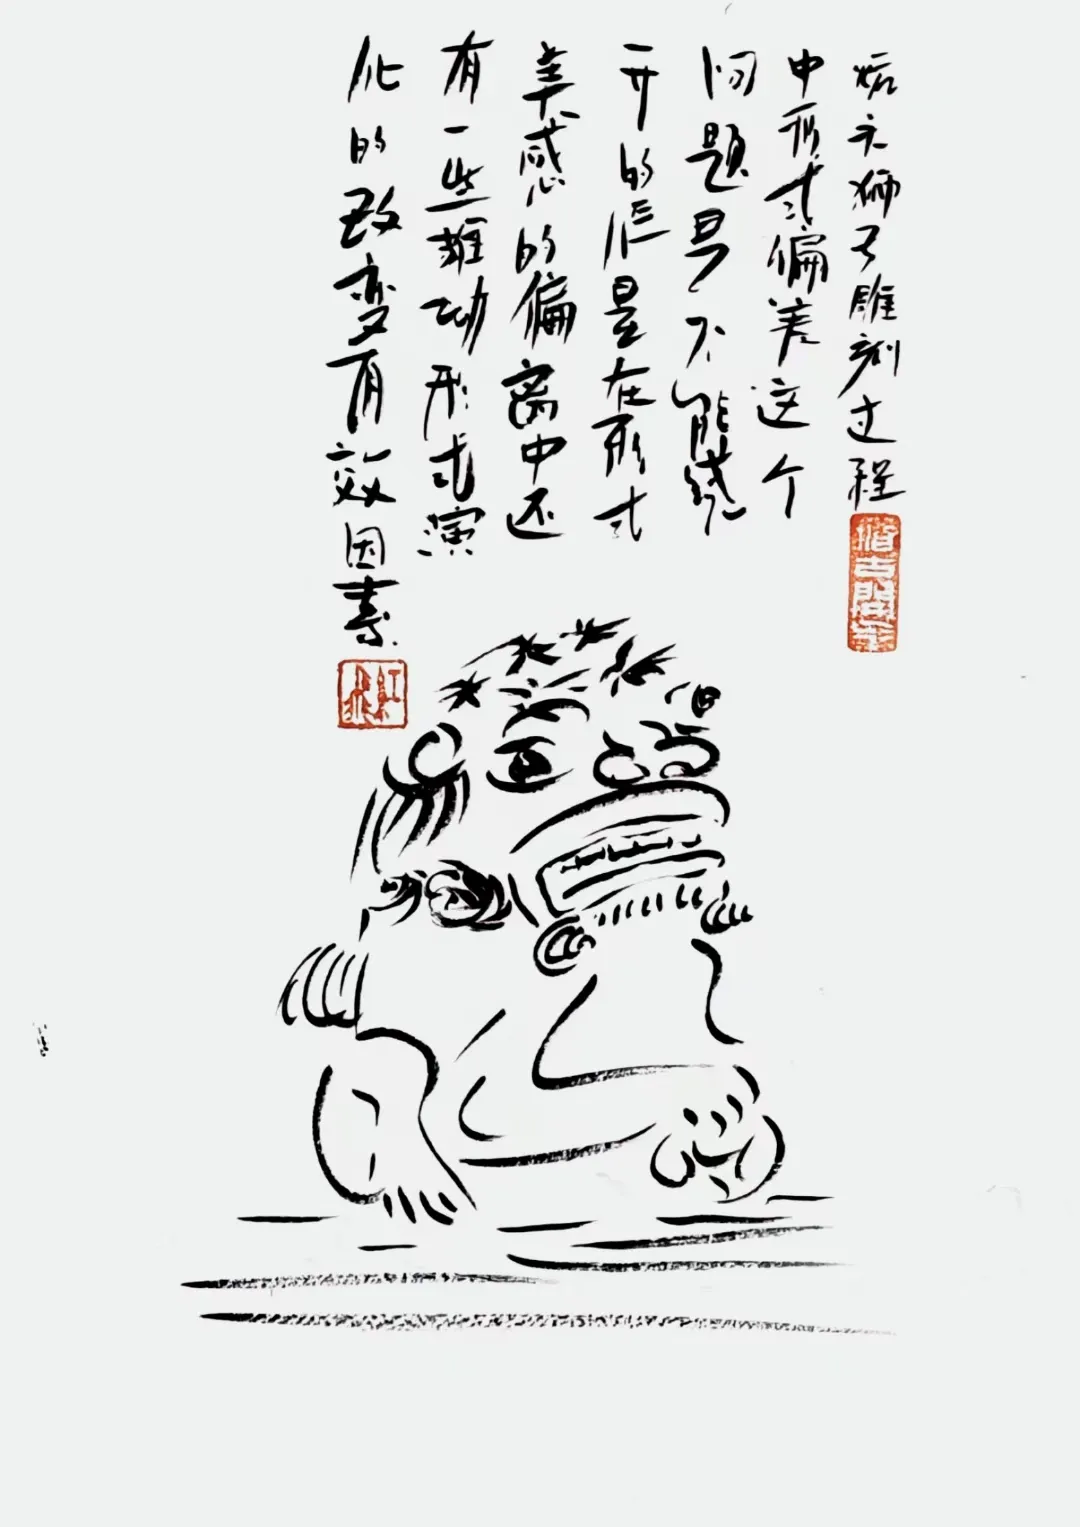 炕头狮子雕刻过程
中形式偏差这个
问题是不能绕
开的但是在形式
美感的偏离中还
有一些推动形式演
化的改变有效因素